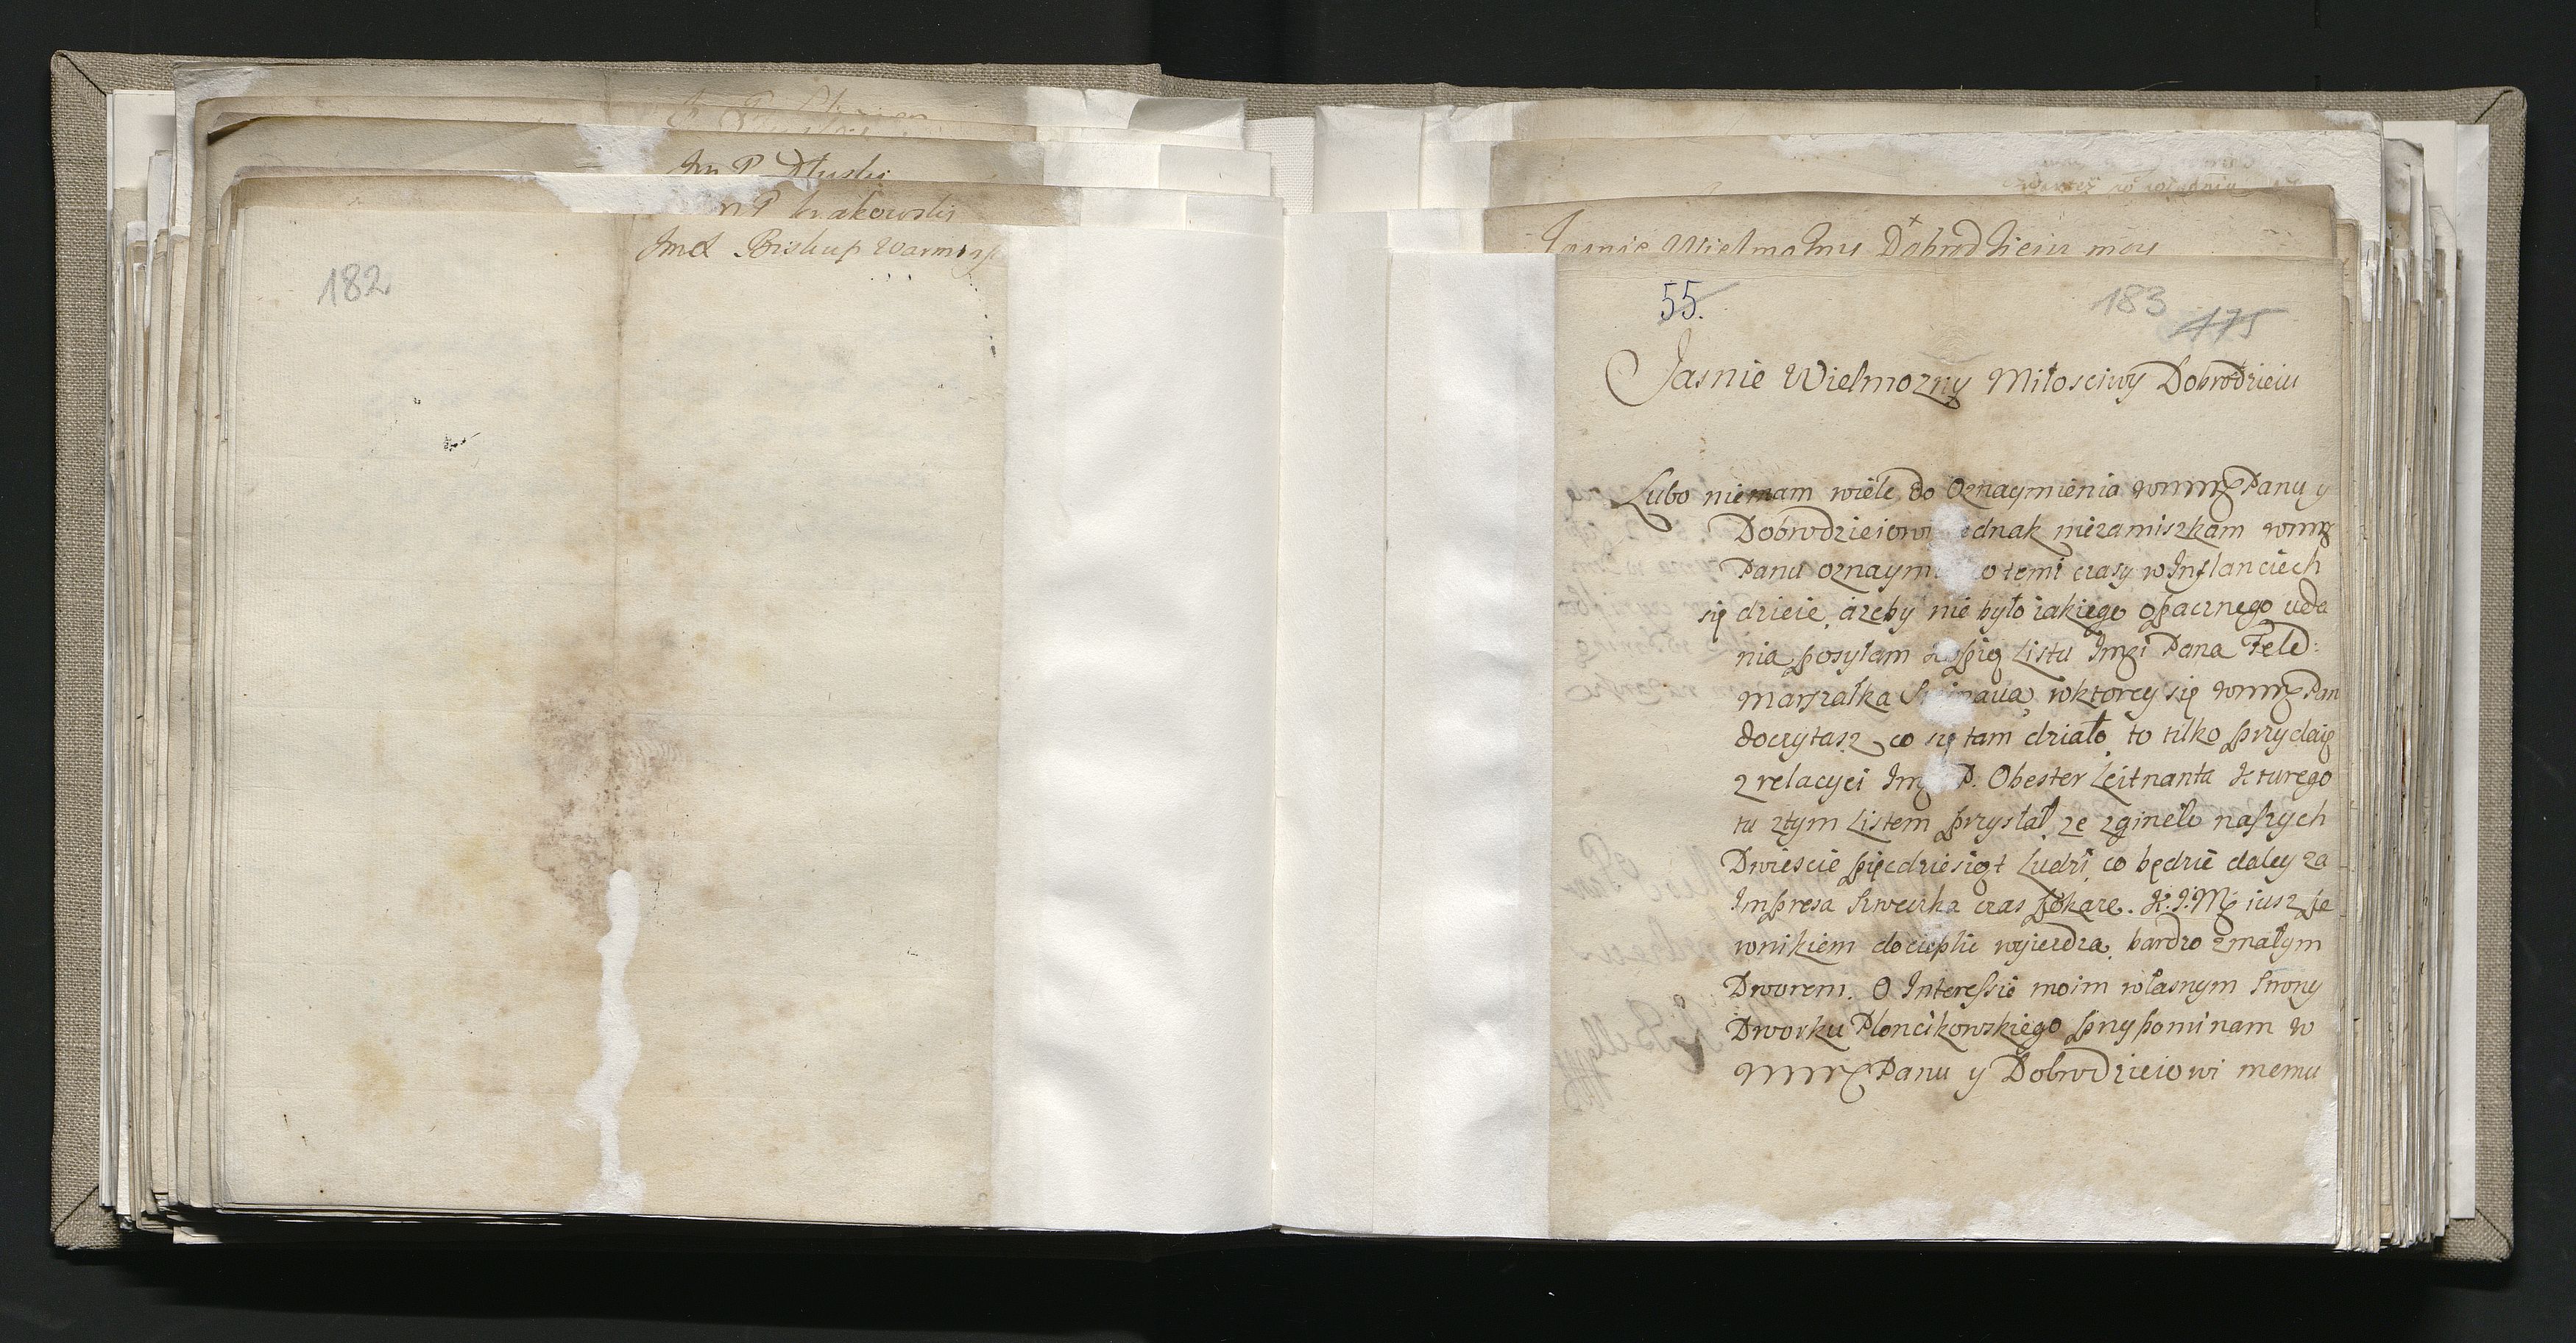 Jm P Dłuski
P krakowski
Jmć Biskup Warmiysk
182
Jasnie Wielmozny Dobrodzieiu moy
55.
183
175
Jasnie Wielmozny Miłosciwy Dobrodzieiu
Lubo niemam wiele do Oznaymienia wmmP Panu y
Dobrodzieiowi ednak niezamiszkam wmm
Panu oznaymi o temi czasy w Inflanciech
się dzieie, azeby nie było iakiego opacznego uda
nia posyłam kopię Listu Jmci Pana Feld:
Marszałka S inaua, wktorey się wmm Pan
doczytasz co się tam działo, to tilko przydaię
z relacyei Jm P. Obester Leitnanta kturego
tu ztym Listem przysłał, ze zgineło naszych
Dwiescie pięcdziesiąt Ludzi, co będzie daley za
Impresa Szwecka czas pokaze. K. J. M iusz je
wnikiem docieplic wyiezdza, bardzo zmałym
Dworem. O Interessie moim własnym strony
Dworku Plonczkowskiego przypominam w
mm Panu y Dobrodzieiowi memu